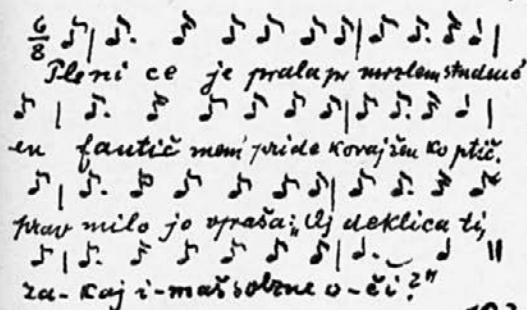 6/8
Pleni ce je prala pr mrzlem studenc
en fantič mem' pride korajžen ko ptič.
prav milo jo vpraša: "Oj deklica ti,
za-kaj i-maš solzne o-či?"